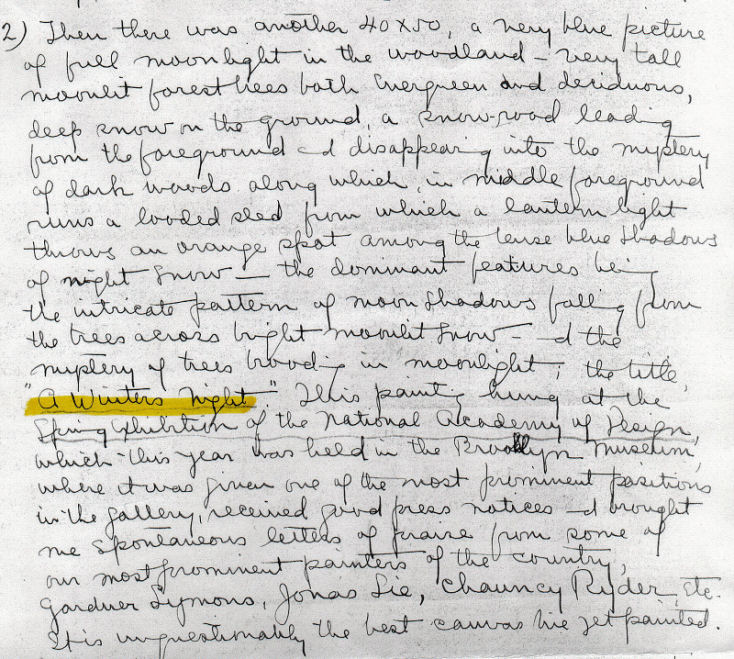 2) Then there was another 40x50, a very blue picture
of full moonlight in the woodland – very tall
moonlit forest trees both evergreen and deciduous,
deep snow on the ground, a snow-road leading
from the foreground and disappearing into the mystery
of dark woods along which, in middle foreground
runs a loaded sled from which a lantern light
throws an orange spot among the tense blue shadows
of night snow – the dominant features being
the intricate pattern of moon shadows falling from
the trees across bright moonlit snow – and the
mystery of trees brooding in moonlight; the title,
"A Winters Night." This painting hung at the
Spring Exhibition of the National Academy of Design,
which this year was held in the Brooklyn Museum,
where it was given one of the most prominent positions
in the gallery, received good press notices and brought
me spontaneous letters of praise from some of
our most prominent painters of the country,
Gardner Symons, Jonas Lie, Chauncy Ryder, etc.
It is unquestionably the best canvas I've yet painted.